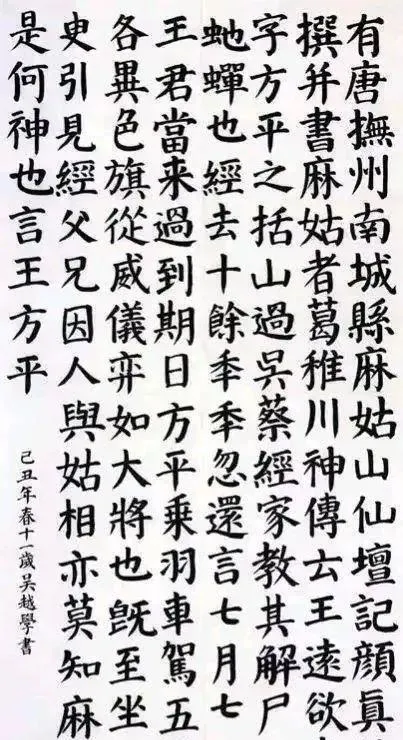 有唐撫州南城縣麻姑山仙壇記顏眞
撰并書麻姑者葛稚川神傳云王遠欲
字方平之括山過吳蔡經家教其解尸
虵蟬也經去十餘秊秊忽還言七月七
王君當来過到期日方平乘羽車駕五
各異色旗從威儀弈如大將也既至坐
臾引見經父兄因人與姑相亦莫知麻
是何神也言王方平
己丑年春十一歲吴越學書